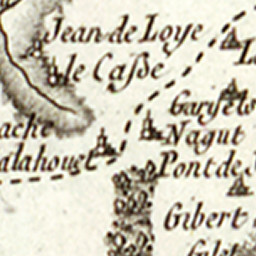 Jean de Loye
le Casse
Garsets
ache
Nagut
alahouet
Pont de
Gibert